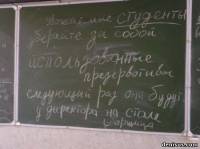 Уважаемые студенты
уберите за собой
использованные
презервативы
следующий раз они будут
у директора на столе
уборщица
denissov.com